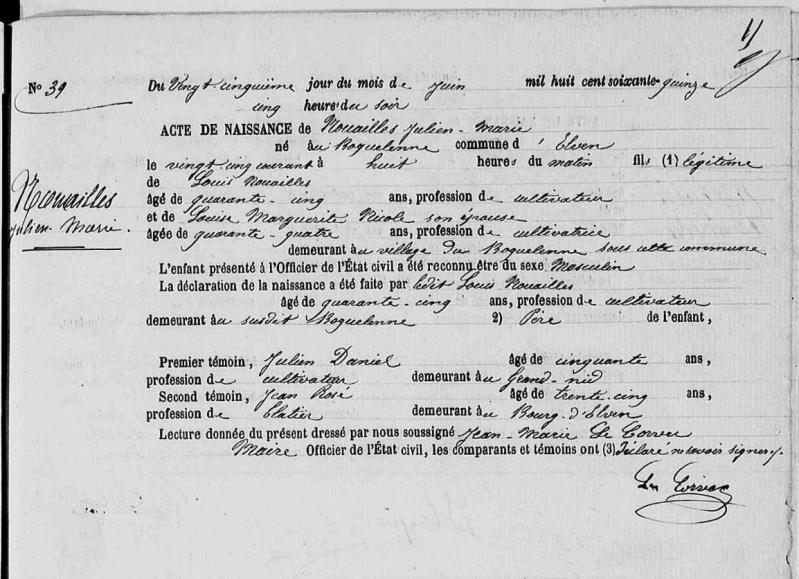 11
No 39
Du Vingt-cinquième jour du mois de juin mil huit cent soixante-quinze
cinq heures du soir
ACTE DE NAISSANCE de Nouailles Julien-Marie
né au Boquelenne commune d'Elven
le vingt cinq courant à huit heures du matin fils (1) légitime
de Louis Nouailles
âgé de quarante-cinq ans, profession de cultivateur
et de Louise Marguerite Nicole son épouse
âgée de quarante-quatre ans, profession de cultivatrice
demeurant au village du Boquelenne sous cette commune
Nouailles
Julien-Marie.
L'enfant présenté à l'Officier de l'État civil a été reconnu être du sexe Masculin
La déclaration de la naissance a été faite par ledit Louis Nouailles
âgé de quarante-cinq ans, profession de cultivateur
demeurant au susdit Boquelenne 2) Père de l'enfant,
Premier témoin, Julien Daniel âgé de cinquante ans,
profession de cultivateur demeurant au Grand-nid
Second témoin, Jean Rosé âgé de trente-cinq ans,
profession de demeurant au Bourg-d'Elven
Lecture donnée du présent dressé par nous soussigné Jean-Marie Le
Maire Officier de l'État civil, les comparants et témoins ont (3) Déclaré ne savoir signer